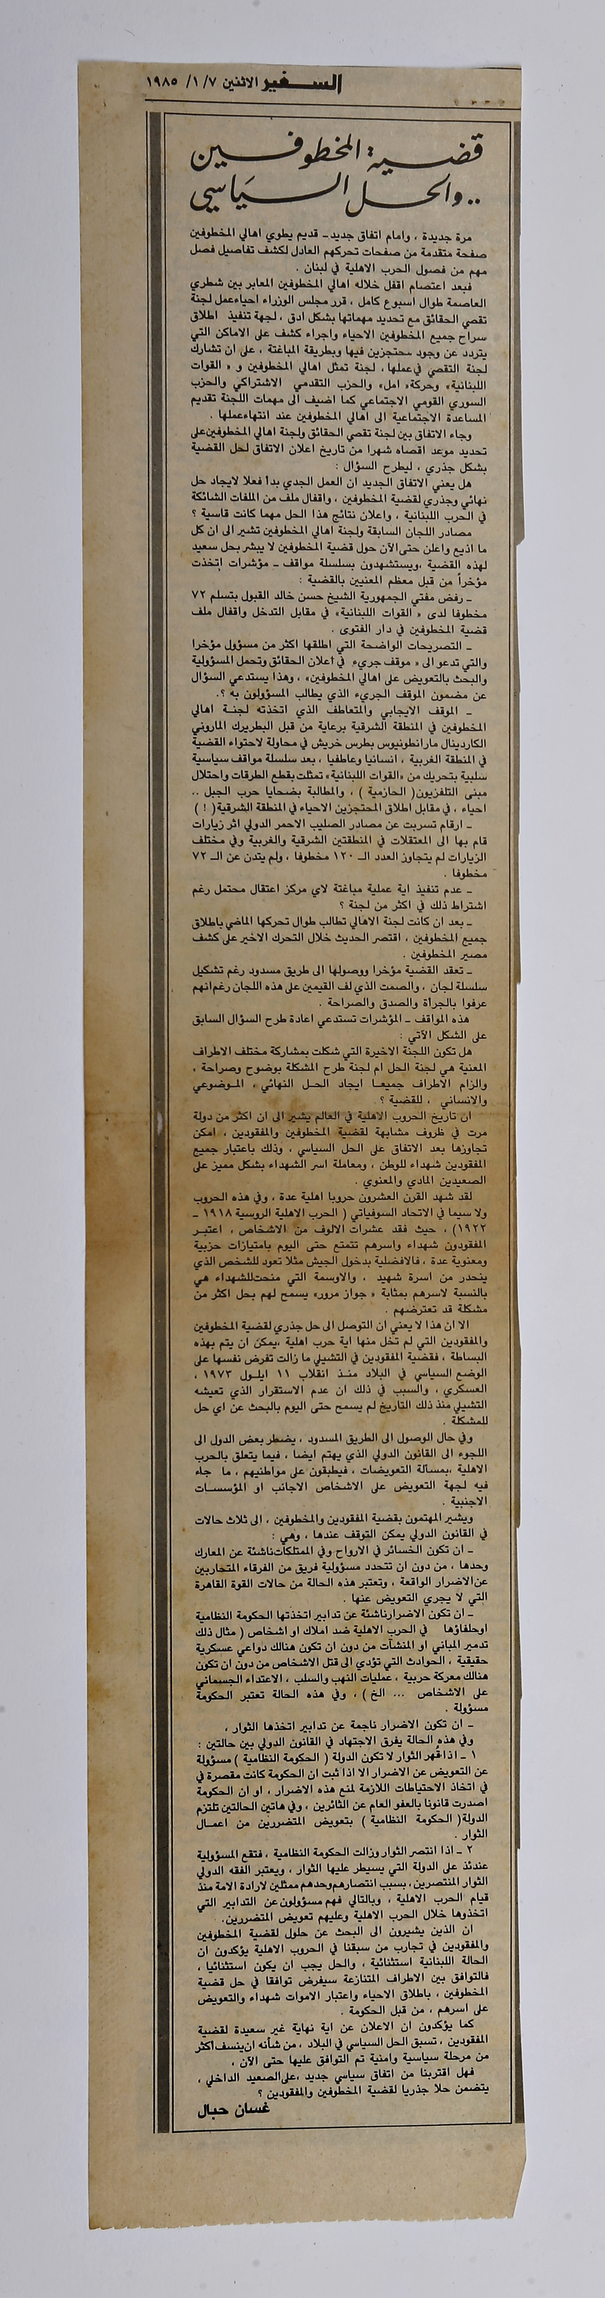 السفير الاثنين ٧ /١/ ١٩٨٥
قضية المخطوفين
.. والحل السياسي
مرة جديدة ، وامام اتفاق جديد ـ قديم يطوي اهالي المخطوفين
صفحة متقدمة من صفحات تحركهم العادل لكشف تفاصيل فصل
مهم من فصول الحرب الاهلية في لبنان .
فبعد اعتصام اقفل خلاله اهالي المخطوفين المعابر بين شطري
العاصمة طوال اسبوع كامل ، قرر مجلس الوزراء احياء عمل لجنة
تقصي الحقائق مع تحديد مهماتها بشكل ادق ، لجهة تنفيذ اطلاق
سراح جميع المخطوفين الاحياء واجراء كشف على الاماكن التي
يتردد عن وجود محتجزين فيها وبطريقة المباغتة ، على ان تشارك
لجنة التقصي في عملها ، لجنة تمثل اهالي المخطوفين و « القوات
اللبنانية» وحركة« امل» والحزب التقدمي الاشتراكي والحزب
السوري القومي الاجتماعي كما اضيف الى مهمات اللجنة تقديم
المساعدة الاجتماعية الى اهالي المخطوفين عند انتهاء عملها .
وجاء الاتفاق بين لجنة تقصي الحقائق ولجنة اهالي المخطوفين على
تحديد موعد اقصاه شهرا من تاريخ اعلان الاتفاق لحل القضية
بشكل جذري ، ليطرح السؤال :
هل يعني الاتفاق الجديد ان العمل الجدي بدأ فعلا لايجاد حل
نهائي وجذري لقضية المخطوفين ، واقفال ملف من الملفات الشائكة
في الحرب اللبنانية ، واعلان نتائج هذا الحل مهما كانت قاسية ؟
مصادر اللجان السابقة ولجنة اهالي المخطوفين تشير الى ان كل
ما اذيع واعلن حتى الآن حول قضية المخطوفين لا يبشر بحل سعيد
لهذه القضية ،ويستشهدون بسلسلة مواقف ـ مؤشرات اتخذت
مؤخراً من قبل معظم المعنيين بالقضية :
ـ رفض مفتي الجمهورية الشيخ حسن خالد القبول بتسلم ٧٢
مخطوفا لدى « القوات اللبنانية» في مقابل التدخل واقفال ملف
قضية المخطوفين في دار الفتوى .
ـ التصريحات الواضحة التي اطلقها اكثر من مسؤول مؤخرا
والتي تدعو الى « موقف جريء» في اعلان الحقائق وتحمل المسؤولية
والبحث بالتعويض على اهالي المخطوفين» ، وهذا يستدعي السؤال
عن مضمون الموقف الجريء الذي يطالب المسؤولون به ؟.
ـ الموقف الايجابي والمتعاطف الذي اتخذته لجنة اهالي
المخطوفين في المنطقة الشرقية برعاية من قبل البطريرك الماروني
الكاردينال مار انطونيوس بطرس خريش في محاولة لاحتواء القضية
في المنطقة الغربية ، انسانيا وعاطفيا ، بعد سلسلة مواقف سياسية
سلبية بتحريك من «القوات اللبنانية» تمثلت بقطع الطرقات واحتلال
مبنى التلفزيون( الحازمية ) ، والمطالبة بضحايا حرب الجبل ..
احياء ، في مقابل اطلاق المحتجزين الاحياء في المنطقة الشرقية( ! )
ـ ارقام تسربت عن مصادر الصليب الاحمر الدولي اثر زيارات
قام بها الى المعتقلات في المنطقتين الشرقية والغربية وفي مختلف
الزيارات لم يتجاوز العدد الـ ١٢٠ مخطوفا ، ولم يتدن عن الـ ٧٢
مخطوفا .
ـ عدم تنفيذ اية عملية مباغتة لاي مركز اعتقال محتمل رغم
اشتراط ذلك في اكثر من لجنة ؟
ـ بعد ان كانت لجنة الاهالي تطالب طوال تحركها الماضي باطلاق
جميع المخطوفين ، اقتصر الحديث خلال التحرك الاخير على كشف
مصير المخطوفين .
ـ تعقد القضية مؤخرا ووصولها الى طريق مسدود رغم تشكيل
سلسلة لجان ، والصمت الذي لف القيمين على هذه اللجان رغم انهم
عرفوا بالجرأة والصدق والصراحة .
هذه المواقف ـ المؤشرات تستدعي اعادة طرح السؤال السابق
على الشكل الآتي :
هل تكون اللجنة الاخيرة التي شكلت بمشاركة مختلف الاطراف
المعنية هي لجنة الحل ام لجنة طرح المشكلة بوضوح وصراحة ،
والزام الاطراف جميعا ايجاد الحل النهائي ، الموضوعي
والانساني ، للقضية ؟
ان تاريخ الحروب الاهلية في العالم يشير الى ان اكثر من دولة
مرت في ظروف مشابهة لقضية المخطوفين والمفقودين ، امكن
تجاوزها بعد الاتفاق على الحل السياسي ، وذلك باعتبار جميع
المفقودين شهداء للوطن ، ومعاملة اسر الشهداء بشكل مميز على
الصعيدين المادي والمعنوي .
لقد شهد القرن العشرون حروبا اهلية عدة ، وفي هذه الحروب
ولا سيما في الاتحاد السوفياتي ( الحرب الاهلية الروسية ١٩١٨ ـ
١٩٢٢) ، حيث فقد عشرات الالوف من الاشخاص ، اعتبر
المفقودون شهداء واسرهم تتمتع حتى اليوم بامتيازات حزبية
ومعنوية عدة ، فالافضلية بدخول الجيش مثلا تعود للشخص الذي
ينحدر من اسرة شهيد ، والاوسمة التي منحت للشهداء هي
بالنسبة لاسرهم بمثابة « جواز مرور» يسمح لهم بحل اكثر من
مشكلة قد تعترضهم .
الا ان هذا لا يعني ان التوصل الى حل جذري لقضية المخطوفين
والمفقودين التي لم تخل منها اية حرب اهلية ،يمكن ان يتم بهذه
البساطة ، فقضية المفقودين في التشيلي ما زالت تفرض نفسها على
الوضع السياسي في البلاد منذ انقلاب ١١ ايلول ١٩٧٣ ،
العسكري ، والسبب في ذلك ان عدم الاستقرار الذي تعيشه
التشيلي منذ ذلك التاريخ لم يسمح حتى اليوم بالبحث عن اي حل
للمشكلة .
وفي حال الوصول الى الطريق المسدود ، يضطر بعض الدول الى
اللجوء الى القانون الدولي الذي يهتم ايضا ، فيما يتعلق بالحرب
الاهلية ،بمسألة التعويضات ، فيطبقون على مواطنيهم ، ما جاء
فيه لجهة التعويض على الاشخاص الاجانب او المؤسسات
الاجنبية .
ويشير المهتمون بقضية المفقودين والمخطوفين ، الى ثلاث حالات
في القانون الدولي يمكن التوقف عندها ، وهي :
ـ ان تكون الخسائر في الارواح وفي الممتلكات ناشئة عن المعارك
وحدها ، من دون ان تتحدد مسؤولية فريق من الفرقاء المتحاربين
عن الاضرار الواقعة ، وتعتبر هذه الحالة من حالات القوة القاهرة
التي لا يجري التعويض عنها .
ـ ان تكون الاضرار ناشئة عن تدابير اتخذتها الحكومة النظامية
او حلفاؤها في الحرب الاهلية ضد املاك او اشخاص ( مثال ذلك
تدمير المباني او المنشآت من دون ان تكون هنالك دواعي عسكرية
حقيقية ، الحوادث التي تؤدي الى قتل الاشخاص من دون ان تكون
هنالك معركة حربية ، عمليات النهب والسلب ، الاعتداء الجسماني
على الاشخاص ... الخ ) ، وفي هذه الحالة تعتبر الحكومة
مسؤولة .
ـ ان تكون الاضرار ناجمة عن تدابير اتخذها الثوار ،
وفي هذه الحالة يفرق الاجتهاد في القانون الدولي بين حالتين :
١ ـ اذا قُهر الثوار لا تكون الدولة ( الحكومة النظامية ) مسؤولة
عن التعويض عن الاضرار الا اذا ثبت ان الحكومة كانت مقصرة في
في اتخاذ الاحتياطات اللازمة لمنع هذه الاضرار ، او ان الحكومة
اصدرت قانونا بالعفو العام عن الثائرين ، وفي هاتين الحالتين تلتزم
الدولة( الحكومة النظامية ) بتعويض المتضررين من اعمال
الثوار .
٢ ـ اذا انتصر الثوار وزالت الحكومة النظامية ، فتقع المسؤولية
عندئذ على الدولة التي يسيطر عليها الثوار ، ويعتبر الفقه الدولي
الثوار المنتصرين ، بسبب انتصارهم وحدهم ممثلين لارادة الامة منذ
قيام الحرب الاهلية ، وبالتالي فهم مسؤولون عن التدابير التي
اتخذوها خلال الحرب الاهلية وعليهم تعويض المتضررين .
ان الذين يشيرون الى البحث عن حلول لقضية المخطوفين
والمفقودين في تجارب من سبقنا في الحروب الاهلية يؤكدون ان
الحالة اللبنانية استثنائية ، والحل يجب ان يكون استثنائيا ،
فالتوافق بين الاطراف المتنازعة سيفرض توافقا في حل قضية
المخطوفين ، باطلاق الاحياء واعتبار الاموات شهداء والتعويض
على اسرهم ، من قبل الحكومة .
كما يؤكدون ان الاعلان عن اية نهاية غير سعيدة لقضية
المفقودين ، تسبق الحل السياسي في البلاد ، من شأنه ان ينسف اكثر
من مرحلة سياسية وامنية تم التوافق عليها حتى الآن .
فهل اقتربنا من اتفاق سياسي جديد ،على الصعيد الداخلي ،
يتضمن حلا جذريا لقضية المخطوفين والمفقودين ؟
غسان حبال